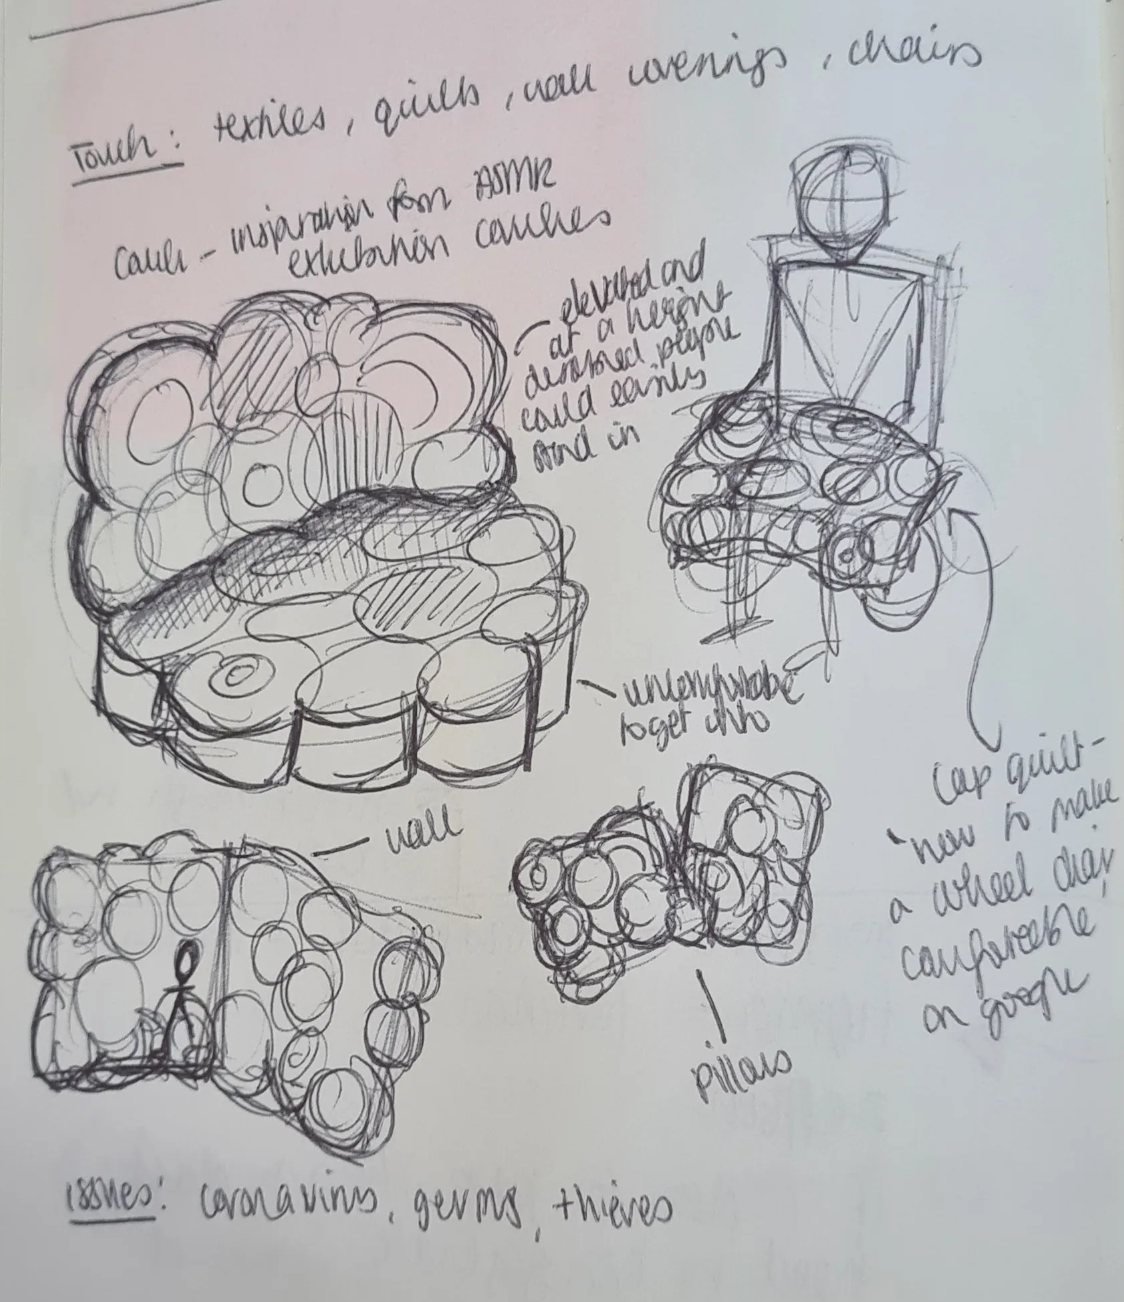 Touch: textiles, quilts, wall coverings, chairs
Couch - inspiration from ASMR
exhibition couches
elevated and
at a height
disabled people
could easily
stand in
uncomfortable
to get into
Lap quilt -
'how to make
a wheel chair
comfortable'
on google
wall
pillows
issues: coronavirus, germs, thieves